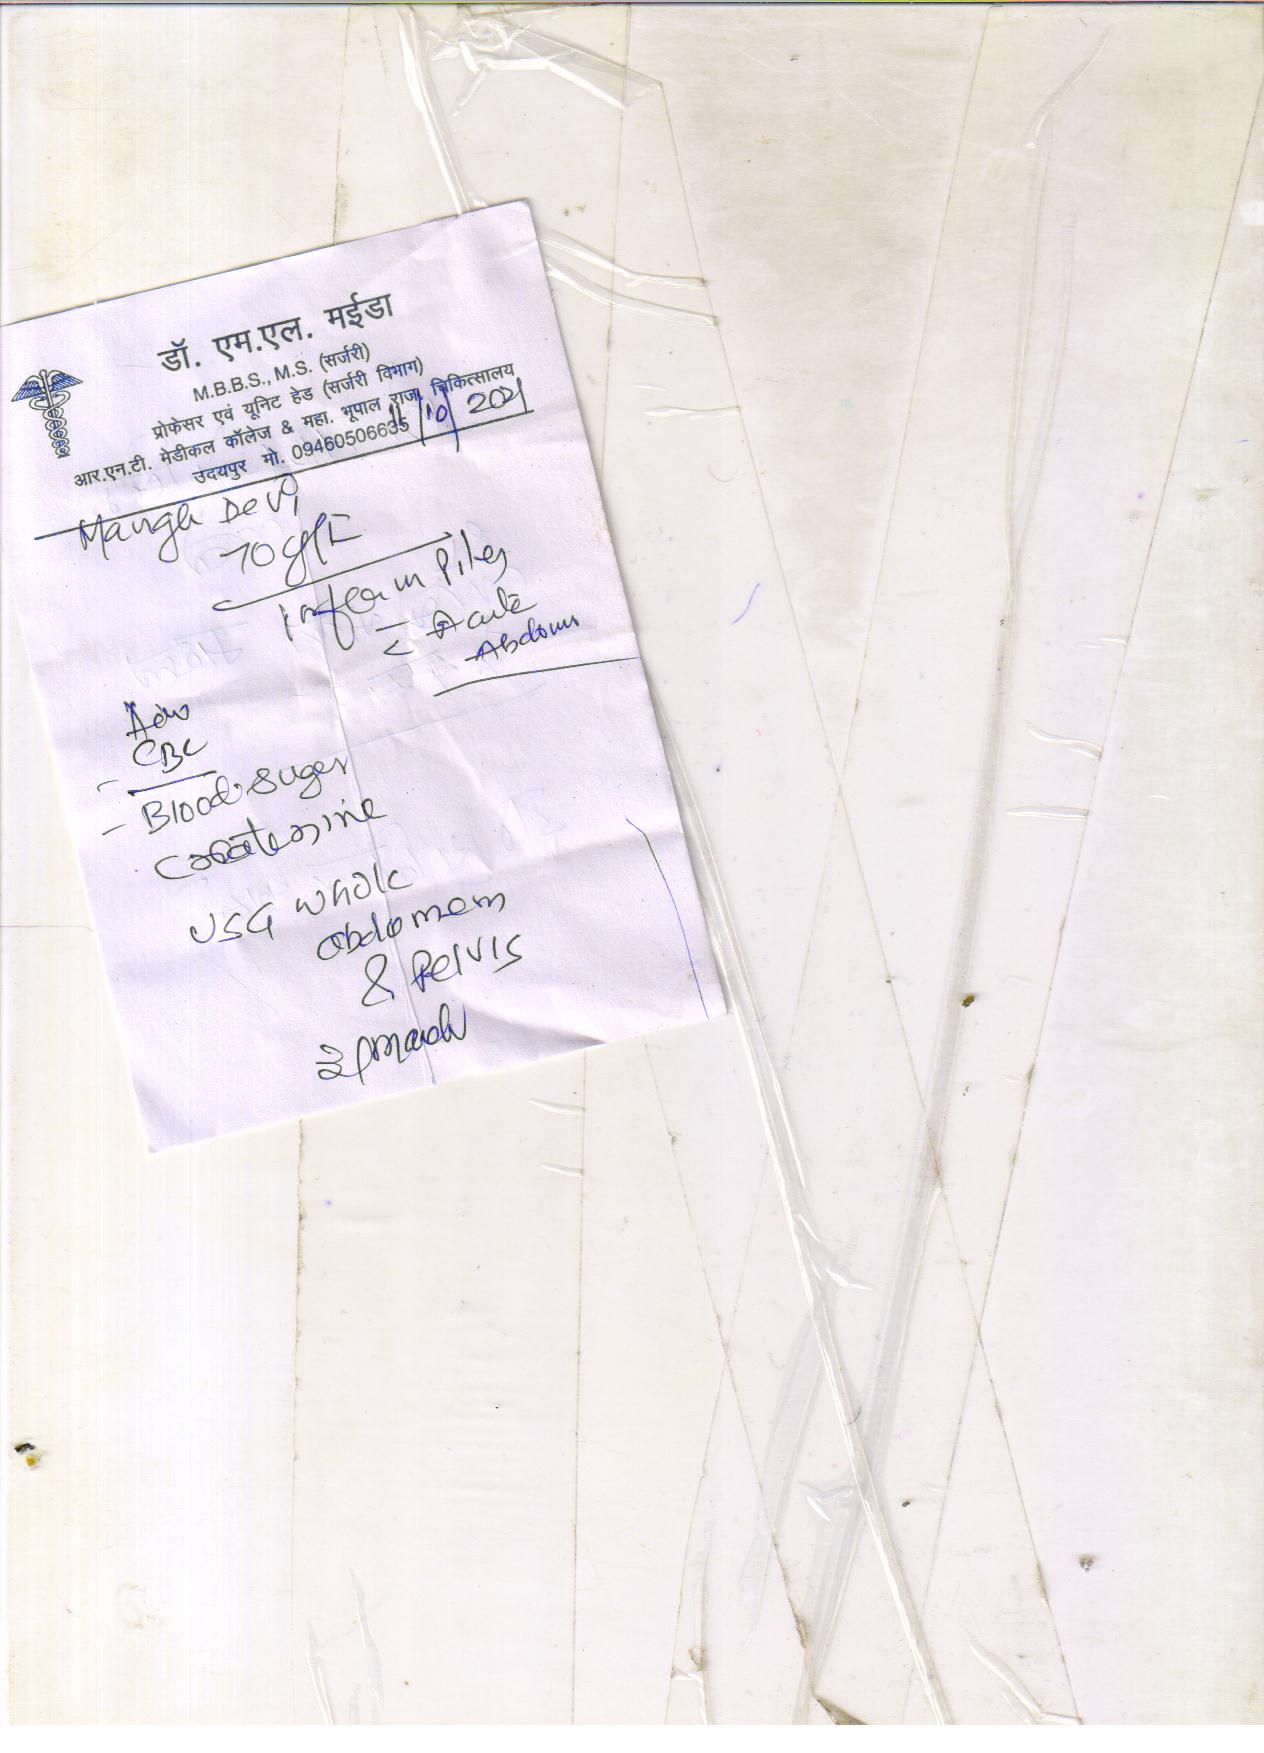 डॉ. एम.एल. मईडा
M.B.B.S., M.S. (सर्जरी)
प्रोफेसर एवं यूनिट हेड (सर्जरी विभाग)
आर.एन.टी. मेडीकल कॉलेज & महा. भूपाल राज. चिकित्सालय
उदयपुर मो. 09460506635
11/10/2021
Devi
70y/F
Piles
c Acute
Abdomen
Adv
- CBC
- Blood suger
USG whole
abdomem
& Pelvis